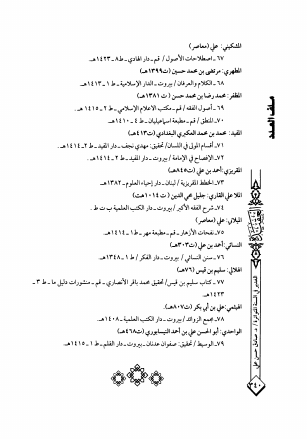 المشكيني: علي (معاصر)
٦٧ـ اصطلاحات الأصول / قم ـ دار الهادي ـ ط٨ ـ ١٤٢٣هـ.
المطهري: مرتضى بن محمد حسين (ت١٣٩٩هـ)
٦٨ـ الكلام والعرفان / بيروت ـ الدار الإسلامية ـ ط١ ـ ١٤١٣هـ.
المظفر: محمد رضا بن محمد حسن (ت ١٣٨١هـ)
٦٩ـ أصول الفقه / قم ـ مكتب الاعلام الإسلامي ـ ط٢ ـ ١٤١٥هـ.
٧٠ـ المنطق / قم ـ مطبعة اسماعيليان ـ ط٤ ـ ١٤١٠هـ.
المفيد: محمد بن محمد العكبري البغدادي (ت٤١٣هـ)
٧١ـ أقسام المولى في اللسان / تحقيق: مهدي نجف ـ دار المفيد ـ ط٢ ـ ١٤١٤هـ.
٧٢ـ الإفصاح في الإمامة / بيروت ـ دار المفيد ـ ط٢ ـ ١٤١٤هـ.
المقريزي: أحمد بن علي (ت٨٤٥هـ)
٧٣ـ الخطط المقريزية / لبنان ـ دار إحياء العلوم ـ ١٣٨٢هـ.
الملا علي القاري: جليل محي الدين (ت ١٠١٤هـ)
٧٤ـ شرح الفقه الأكبر / بيروت ـ دار الكتب العلمية ب ت ط.
الميلاني: علي (معاصر)
٧٥ـ نفحات الأزهار ـ قم ـ مطبعة مهر ـ ط١ ـ ١٤١٤هـ.
النسائي: أحمد بن علي (ت٣٠٣هـ)
٧٦ـ سنن النسائي / بيروت ـ دار الفكر / ط١ ـ ١٣٤٨هـ.
الهلالي: سليم بن قيس (٧٦هـ)
٧٧ـ كتاب سليم بن قيس / تحقيق محمد باقر الأنصاري ـ قم ـ منشورات دليل ما ـ ط٣ ـ
١٤٢٣هـ.
الهيثمي: علي بن أبي بكر (ت٨٠٧هـ)
٧٨ـ مجمع الزوائد / بيروت ـ دار الكتب العلمية ـ ١٤٠٨هـ.
الواحدي: أبو الحسن علي بن أحمد النيسابوري (ت٤٦٨هـ)
٧٩ـ الوسيط / تحقيق: صفوان عدنان ـ بيروت ـ دار القلم ـ ط١ ـ ١٤١٥هـ.
ملف العدد
٣٤٠